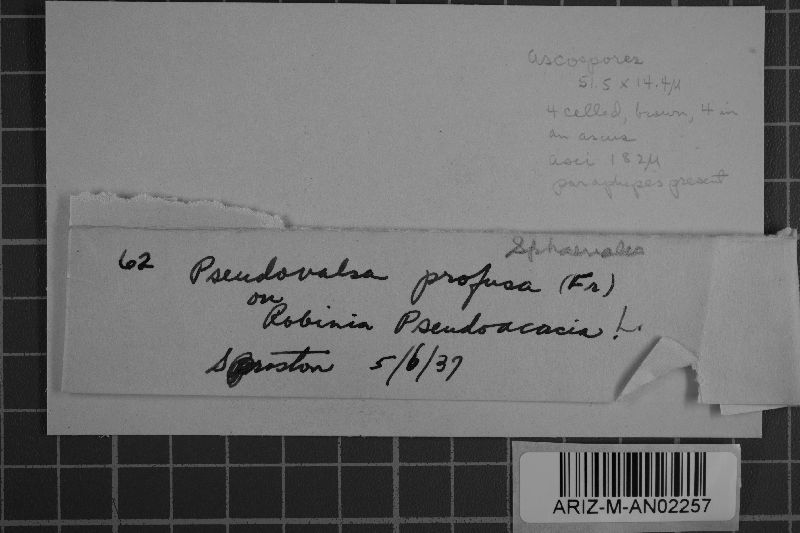 ascospores
51.5 x 14.4μ
4 celled, brown, 4 in
an ascus
asci 182μ
paraphyses present
Sphaeriales
62 Pseudovalsa profusa (Fr)
on
Robinia Pseudoacacia L.
Sproston 5/6/37
ARIZ-M-AN02257